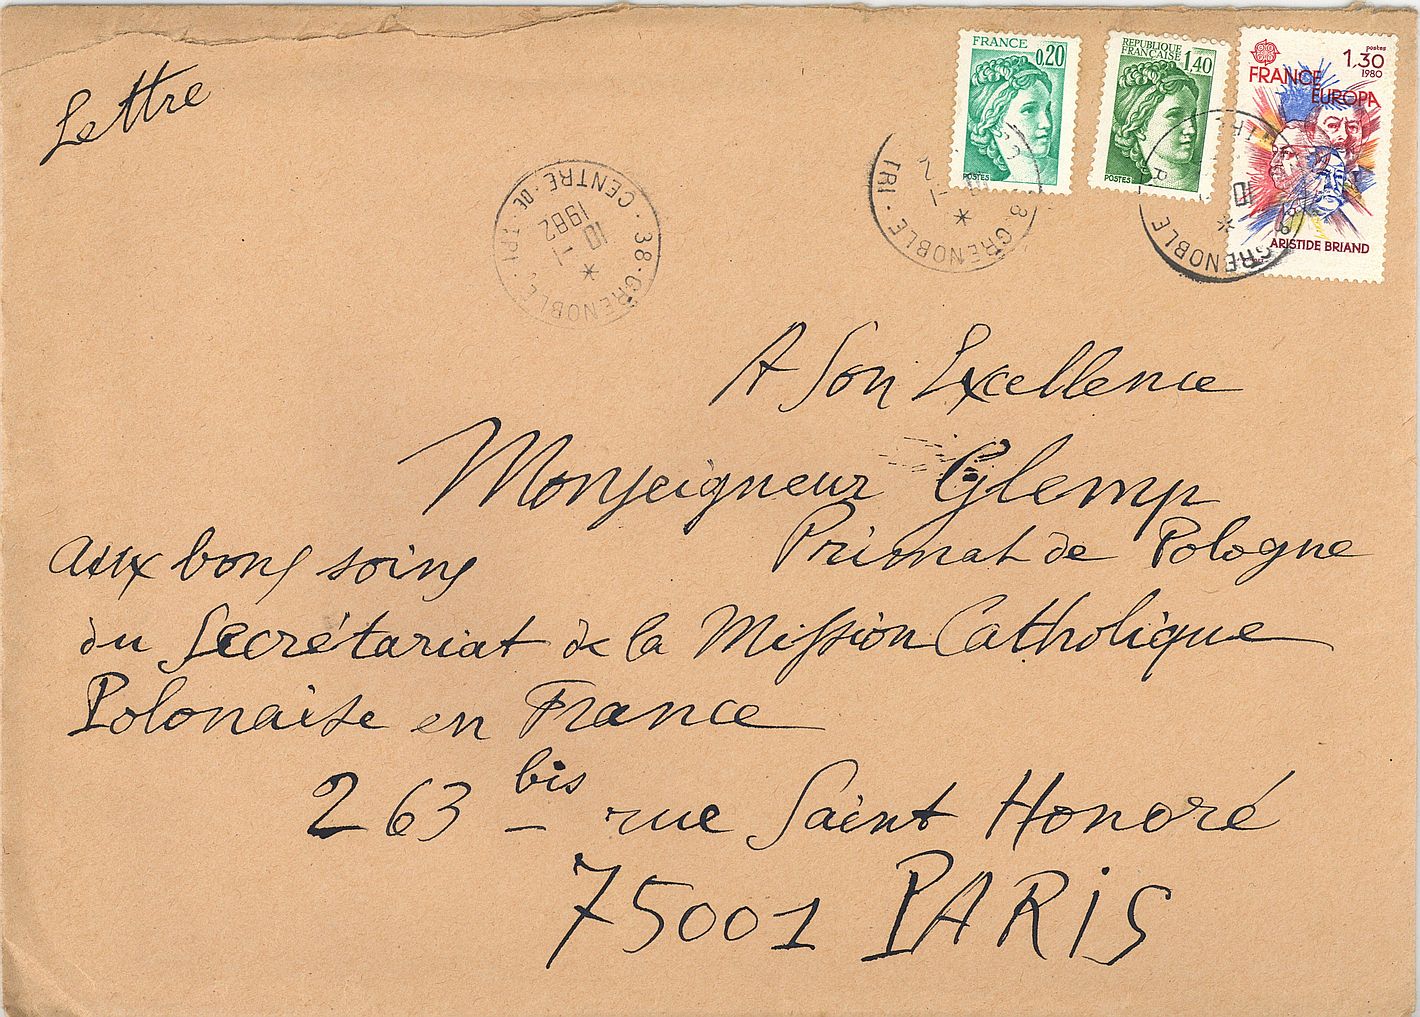 Lettre
FRANCE
0,20
POSTES
REPUBLIQUE
FRANÇAISE
1,40
POSTES
postes
1.30
1980
FRANCE
EUROPA
ARISTIDE BRIAND
38-GRENOBLE
CENTRE-DE-TRI
10 -1
1982
38-GRENOBLE
TRI
GRENOBLE
A Son Excellence
Monseigneur Glemp
Primat de Pologne
aux bons soins
du Secrétariat de la Mission Catholique
Polonaise en France
263 bis rue Saint Honoré
75001 PARIS